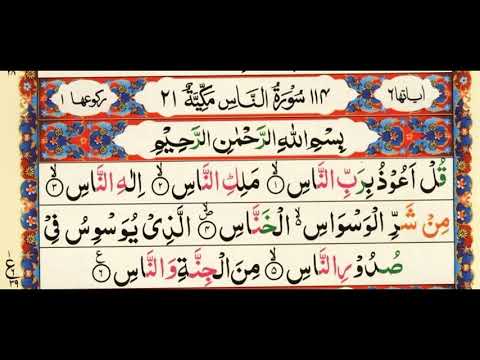 اٰیاتھا ٦ ١١٤ سُوْرَةُ النَّاسِ مَكِّيَّةٌ ٢١ رکوعھا ١
بِسْمِ اللّٰهِ الرَّحْمٰنِ الرَّحِيْمِ
قُلْ اَعُوْذُ بِرَبِّ النَّاسِ ۙ﴿١﴾ مَلِكِ النَّاسِ ۙ﴿٢﴾ اِلٰهِ النَّاسِ ۙ﴿٣﴾
مِنْ شَرِّ الْوَسْوَاسِ ۙ الْخَنَّاسِ ۪ۙ﴿٤﴾ الَّذِیْ یُوَسْوِسُ فِیْ
صُدُوْرِ النَّاسِ ۙ﴿٥﴾ مِنَ الْجِنَّةِ وَالنَّاسِ ﴿٦﴾